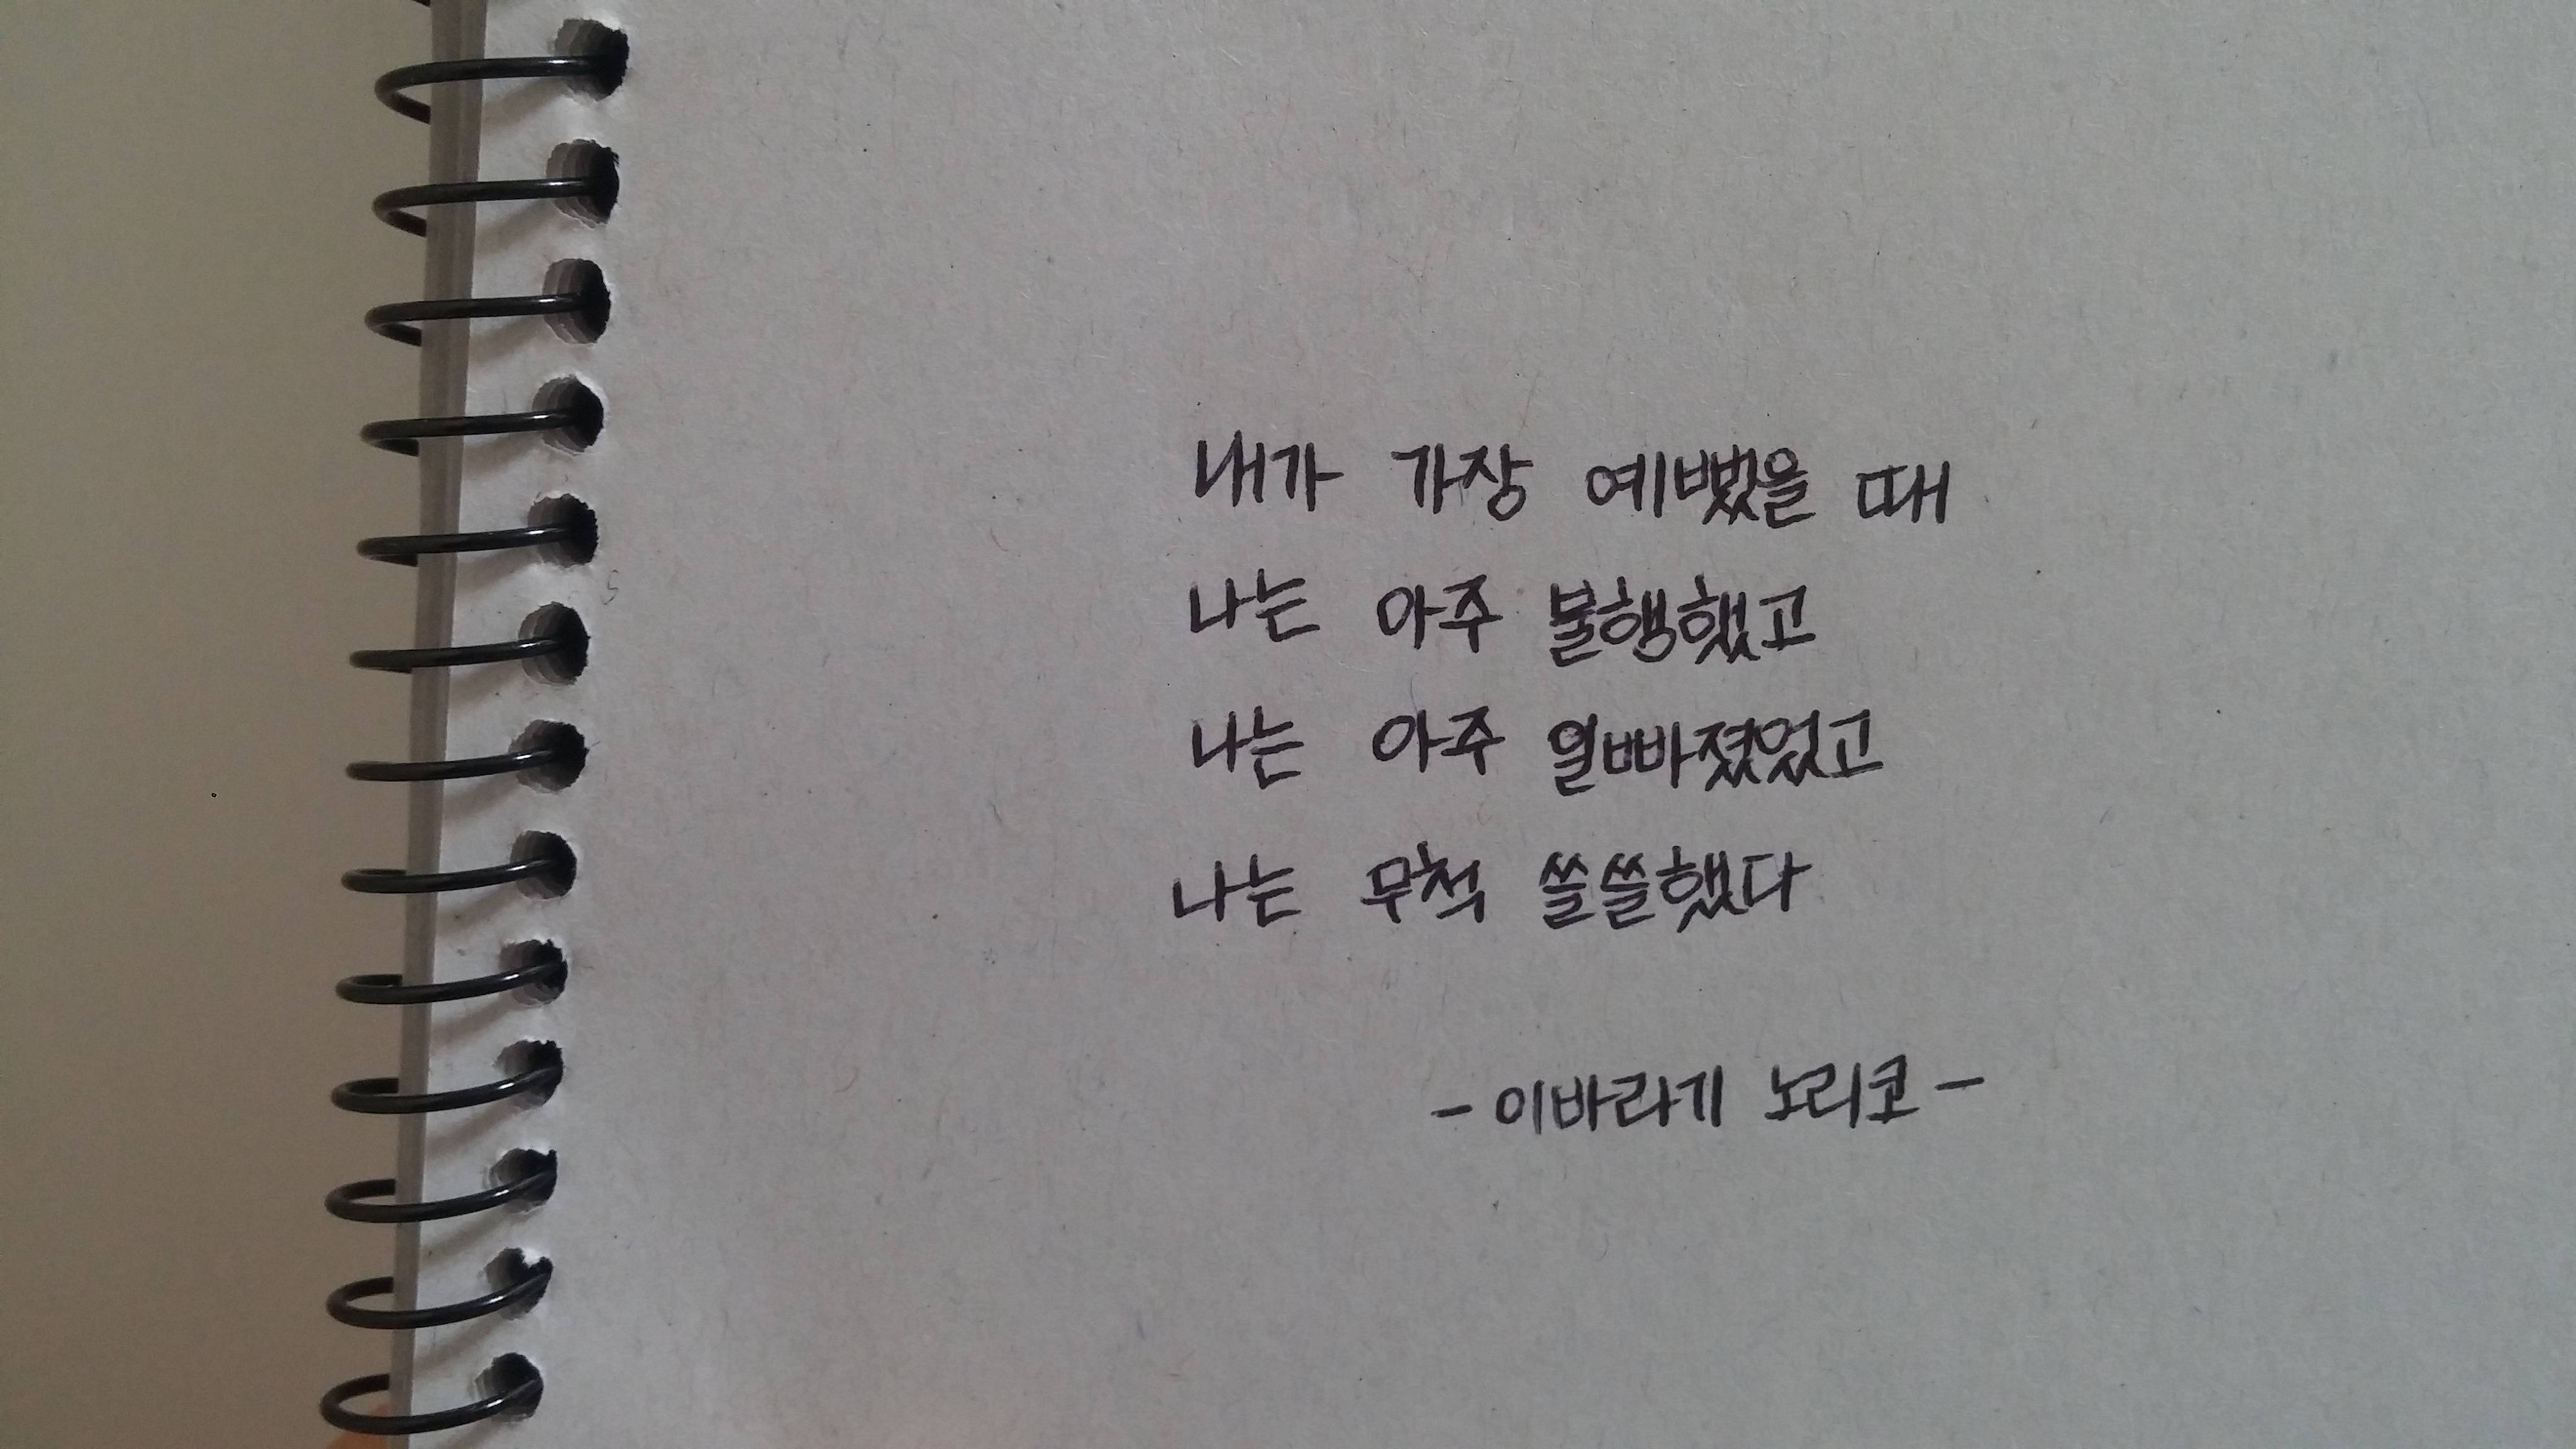 내가 가장 예뻤을 때
나는 아주 불행했고
나는 아주 얼빠졌었고
나는 무척 쓸쓸했다
- 이바라기 노리코 -